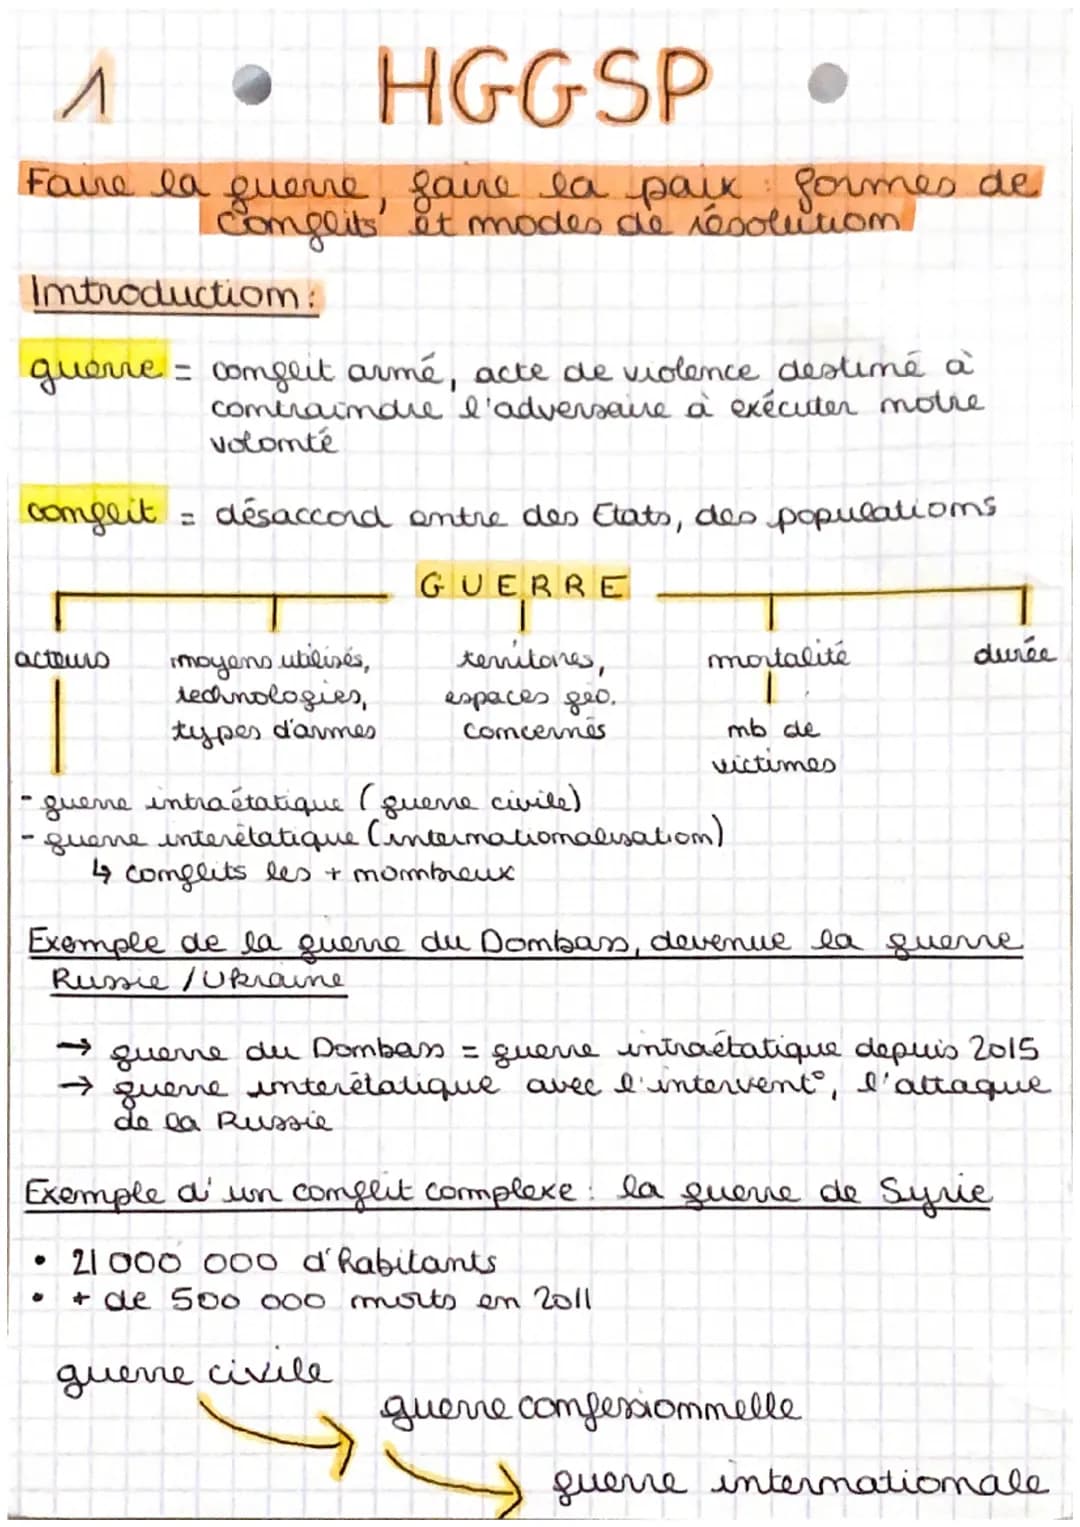 1 HGGSP
Faire la guerre, faire la paix : formes de
conflits et modes de résolution
Introduction :
guerre = conflit armé, acte de violence destiné à
contraindre l'adversaire à exécuter notre
volonté
conflit = désaccord entre des Etats, des populations
GUERRE
acteurs
moyens utilisés,
technologies,
types d'armes
territoires,
espaces géo.
concernés
mortalité
nb de
victimes
durée
- guerre intraétatique (guerre civile)
- guerre interétatique (internationalisation)
↳ conflits les + nombreux
Exemple de la guerre du Donbass, devenue la guerre
Russie / Ukraine
→ guerre du Donbass = guerre intraétatique depuis 2015
→ guerre interétatique avec l'intervent°, l'attaque
de la Russie
Exemple d'un conflit complexe : la guerre de Syrie
• 21 000 000 d'habitants
• + de 500 000 morts en 2011
guerre civile
guerre confessionnelle
guerre internationale